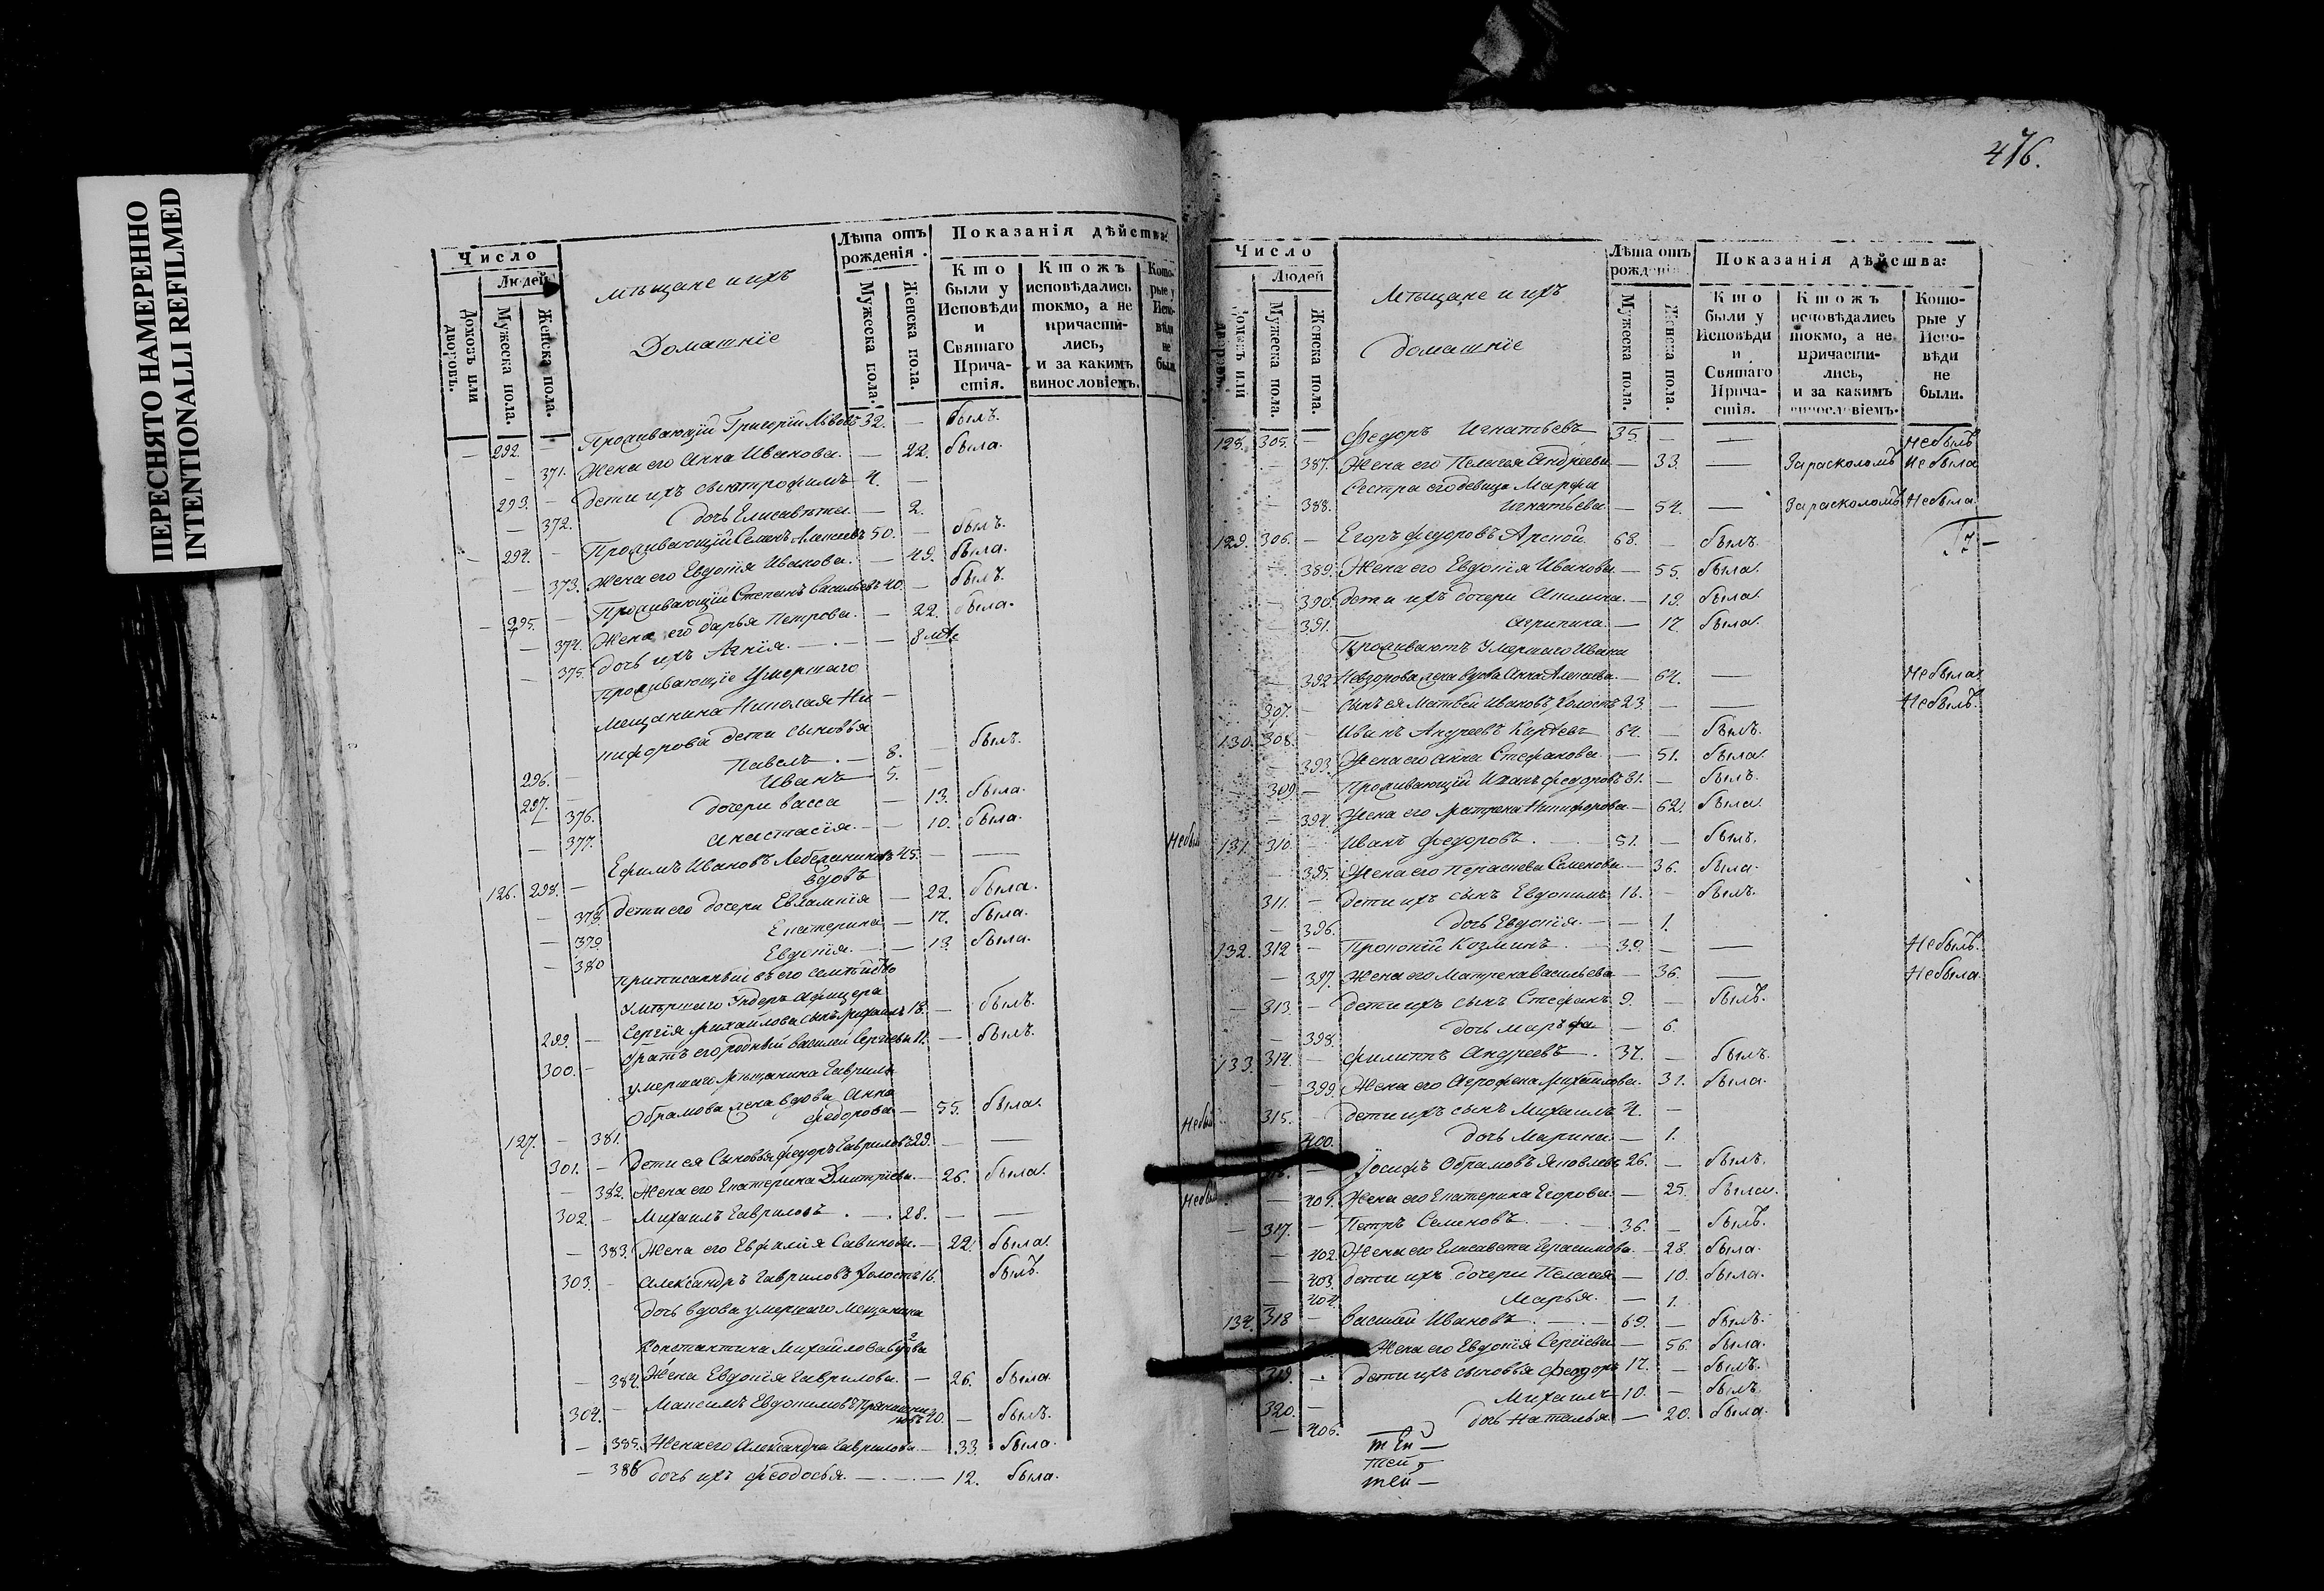 ПЕРЕСНЯТО НАМЕРЕННО
INTENTIONALLI REFILMED
Число
Людей
Домовъ или дворовъ.
Мужеска пола.
Женска пола.
Мѣщане и ихъ
Домашніе
Лѣта отъ рожденія.
Мужеска пола.
Женска пола.
Показанія дѣйства:
Кто были у Исповѣди и Святаго Причастія.
Ктожъ исповѣдались токмо, а не причастились, и за какимъ винословіемъ.
Которые у Исповѣди не были.
— 292. — Проживающій Григорій Львовъ 32. — былъ.
— 371. Жена его Анна Иванова. — 22. была.
293. — Дети ихъ сынъ Трофимъ 4. —
— 372. дочь Елисавѣта — 2.
— 294. — Проживающій Семенъ Алексѣевъ 50. — былъ.
— 373. Жена его Евдокія Иванова. — 49. была.
— 295. — Проживающій Степанъ Васильевъ 40. — былъ.
— 374. Жена его Дарья Петрова. — 22. была.
— 375. дочь ихъ Агнія. — 8 мѣс
Проживающіе Умершаго
мещанина Николая Ни-
кифорова дети сыновья
296. — Павелъ. — 8. — былъ.
297. — Иванъ 5. —
376. дочери Васса — 13. была.
— 377. Анастасія. — 10. была.
126. 298. — Ефимъ Ивановъ Лебедкинъ 45. — —
вдовъ Небыл
— 378. дети его дочери Евлампія — 22. была.
— 379. Екатерина — 17. была.
— 380 Евдокія. — 13. была.
приписанный въ его семѣйство
Умѣршаго Ундеръ афицера
299. — Сергія Михайлова сынъ Михаилъ 18. — былъ.
300. — братъ его родный Василей Сергѣевъ 11. — былъ.
умершаго Мѣщанина Гаврилы
Обрамова жена вдова Анна
127. — 381. Федорова — 55. была.
301. — Дети ея Сыновья Федоръ Гавриловъ 29. — — Небыл
— 382. Жена его Екатерина Дмитріева. — 26. была.
302. — Михаилъ Гавриловъ. — 28. — — Небыл
— 383. Жена его Евфалія Савинова. — 22. была.
303. — Александръ Гавриловъ холостъ 16. былъ.
дочь вдова умершаго Мещанина
Константина Михайлова
— 384. Жена Евдокія Гаврилова. — 26. была.
304. — Максимъ Евдокимовъ 40. — былъ.
— 385. Жена его Александра Гаврилова. — 33. была.
— 386 дочь ихъ Феодосья. — 12. была.
476.
Число
Людей
Домовъ или дворовъ.
Мужеска пола.
Женска пола.
Мѣщане и ихъ
домашніе
Лѣта отъ рожденія.
Мужеска пола.
Женска пола.
Показанія дѣйства:
Кто были у Исповѣди и Святаго Причастія.
Ктожъ исповѣдались токмо, а не причастились, и за какимъ винословіемъ.
Которые у Исповѣди не были.
128. 305. — Федоръ Игнатьевъ 35. — — Небылъ
— 387. Жена его Пелагея Андреева — 33. — За расколомъ Небыла
Сестра его девица Марфа
— 388. Игнатьева — 54. — За расколомъ Небыла
129. 306. — Егоръ Федоровъ 68. — былъ.
389. Жена его Евдокія Иванова — 55. была.
— 390. дети ихъ дочери Акилина. — 19. была.
— 391. Агрипина — 17. была.
Проживаютъ Умершаго Ивана
392 Невзорова жена вдова Анна Алексѣева. — 64. — Небыла.
307. — сынъ ея Матвей Ивановъ холостъ 23. — — Небылъ.
130. 308. — Иванъ Андреевъ 64. — былъ.
— 393. Жена его Анна Стефанова. — 51. была.
309 — Проживающій Иванъ Федоровъ 81. — былъ.
— 394. Жена его Матрена Никифорова — 62. была.
131. 310. — Иванъ Федоровъ. — 51. — былъ.
— 395. Жена его Параскева Семенова — 36. была.
311. — дети ихъ сынъ Евдокимъ 16. — былъ.
— 396. дочь Евдокія. — 1.
132. 312 — Прокопій Козминъ. — 39. — — Небылъ.
— 397. Жена его Матрена Васильева — 36. — Небыла.
— 313. — дети ихъ сынъ Стефанъ 9. — былъ.
— 398. дочь Марѳа — 6.
133. 314. — Филиппъ Андреевъ. 37. — былъ.
— 399. Жена его Агрофена Михайлова. 31. была.
315. — дети ихъ сынъ Михаилъ 4. —
400. дочь Марина — 1.
— Іосифъ Обрамовъ Яковлевъ 26. — былъ.
— 401. Жена его Екатерина Егорова. — 25. была.
— 317. — Петръ Семеновъ. — 36. — былъ.
— 402. Жена его Елисавета Герасимова. — 28. была.
— 403. дети ихъ дочери Пелагея — 10. была.
404. Марья. — 1.
134. 318 — Василій Ивановъ. — 69. — былъ.
Жена его Евдокія Сергѣева — 56. была.
319. — дети ихъ сыновья Феодоръ 17. — былъ.
320. — Михаилъ 10. — былъ.
— 406. дочь Наталья. — 20. была.